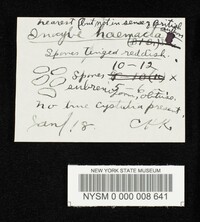 nearest but not in sense of British
Inocybe haemacta
Spores tinged reddish.
10-12
Spores x
subreni form, obtuse.
No true cystidia present.
Jan/18. CHK
NEW YORK STATE MUSEUM
NYSM 0 000 008 641